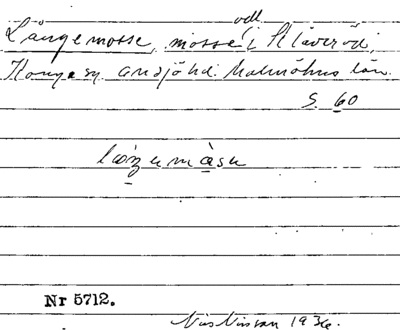 odl.
Långemosse, mosse i Klåveröd,
Konga sn. Onsjö hd. Malmöhus län.
S. 60
laŋ̊emåsu
Nr 5712.
Nils Nilsson 1936.